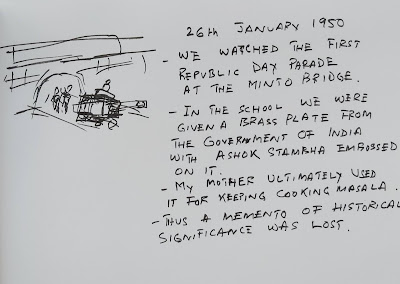 26th JANUARY 1950
- WE WATCHED THE FIRST
REPUBLIC DAY PARADE
AT THE MINTO BRIDGE.
- IN THE SCHOOL WE WERE
GIVEN A BRASS PLATE FROM
THE GOVERNMENT OF INDIA
WITH ASHOK STAMBHA EMBOSSED
ON IT.
- MY MOTHER ULTIMATELY USED
IT FOR KEEPING COOKING MASALA.
- THUS A MEMENTO OF HISTORICAL
SIGNIFICANCE WAS LOST.